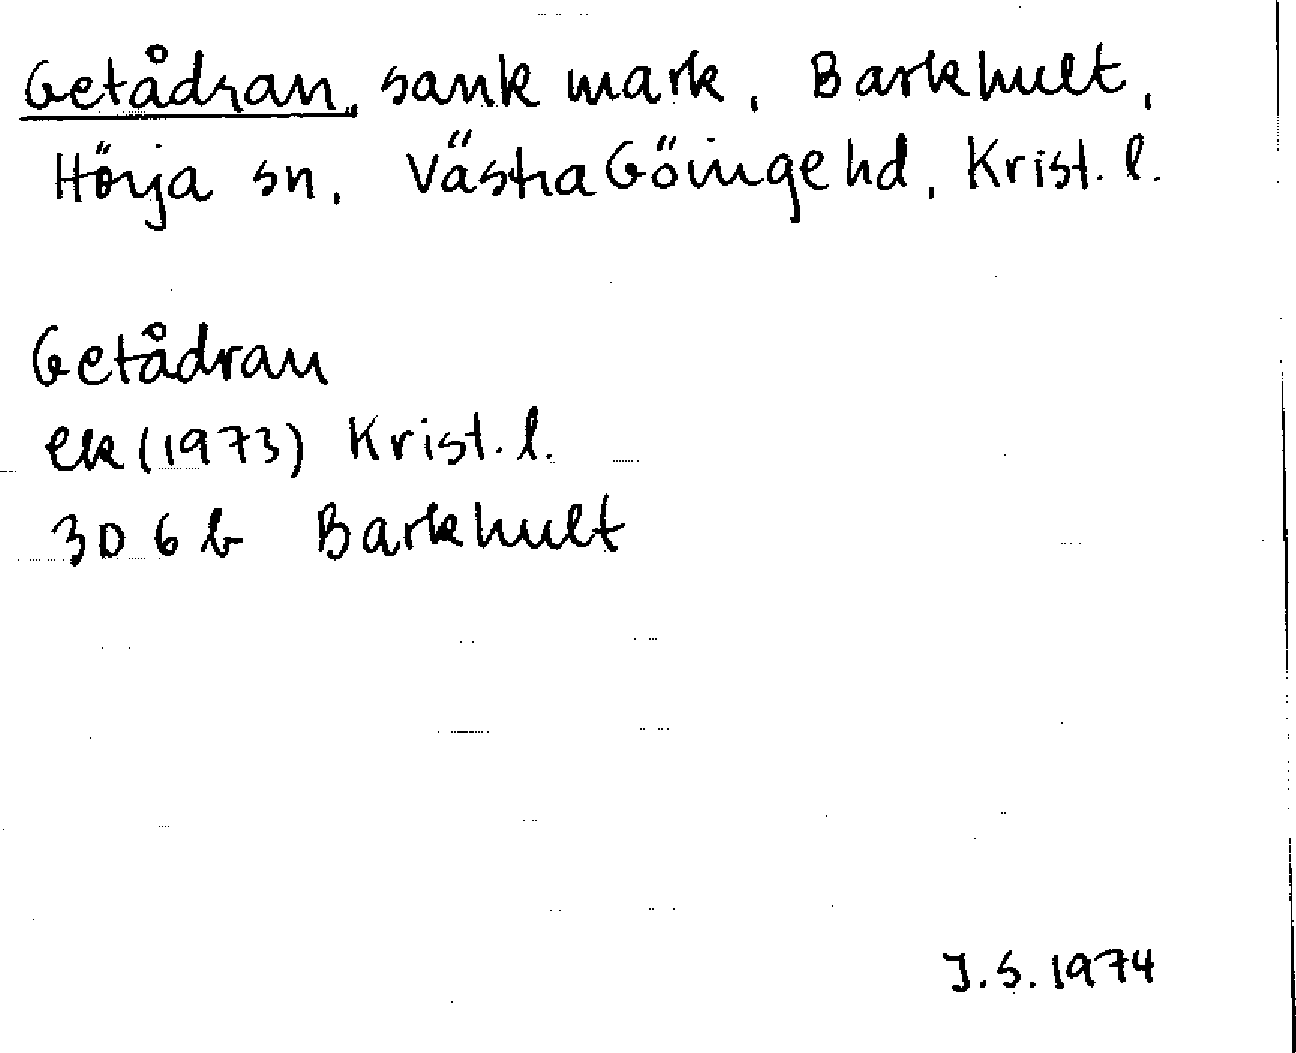 Getådran, sank mark, Barkhult,
Hörja sn, Västra Göinge hd, Krist. l.
Getådran
ek (1973) Krist. l.
3D 6 b Barkhult
J.S. 1974